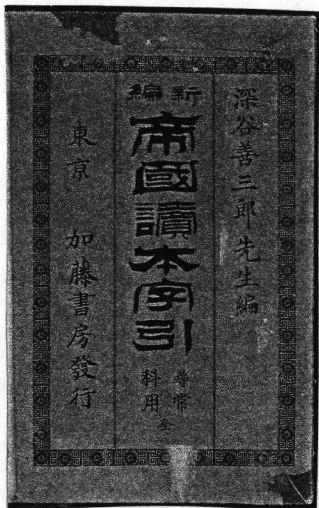 深谷善三郎先生編
新編
帝國讀本字引
尋常
科用
全
東京　加藤書房發行